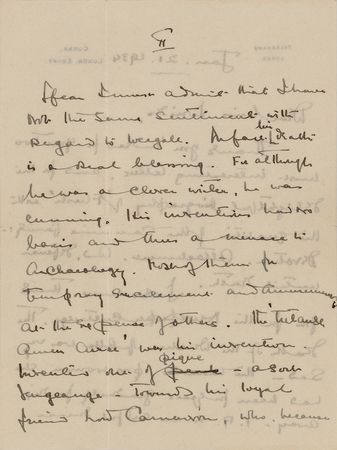 II
I fear I must admit that I have
not the same sentiment with
regard to Weigall. In fact his death
is a real blessing. For although
he was a clever writer, he was
cunning. His inventions had no
basis and thus a menace to
Archaeology. Most of them for
temporary excitement and amusement
at the expense of others. The 'Tutankh
Amen Curse' was his invention.
Invented out of pique - a sort
vengeance - towards his loyal
friend Lord Carnarvon, who, because